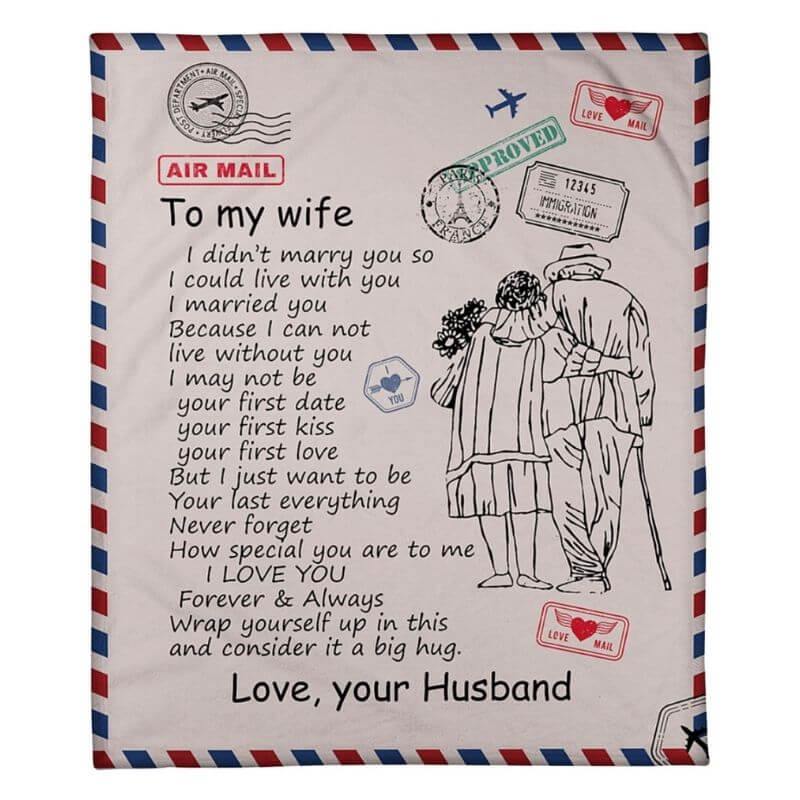 POST DEPARTMENT • AIR MAIL • SPECIAL DELIVERY •
LOVE MAIL
APPROVED
AIR MAIL
PARIS
FRANCE
12345
IMMIGRATION
To my wife
I didn't marry you so
I could live with you
I married you
Because I can not
live without you
I may not be
your first date
your first kiss
your first love
But I just want to be
Your last everything
Never forget
How special you are to me
I LOVE YOU
Forever & Always
Wrap yourself up in this
and consider it a big hug.
Love, your Husband
I
YOU
LOVE MAIL